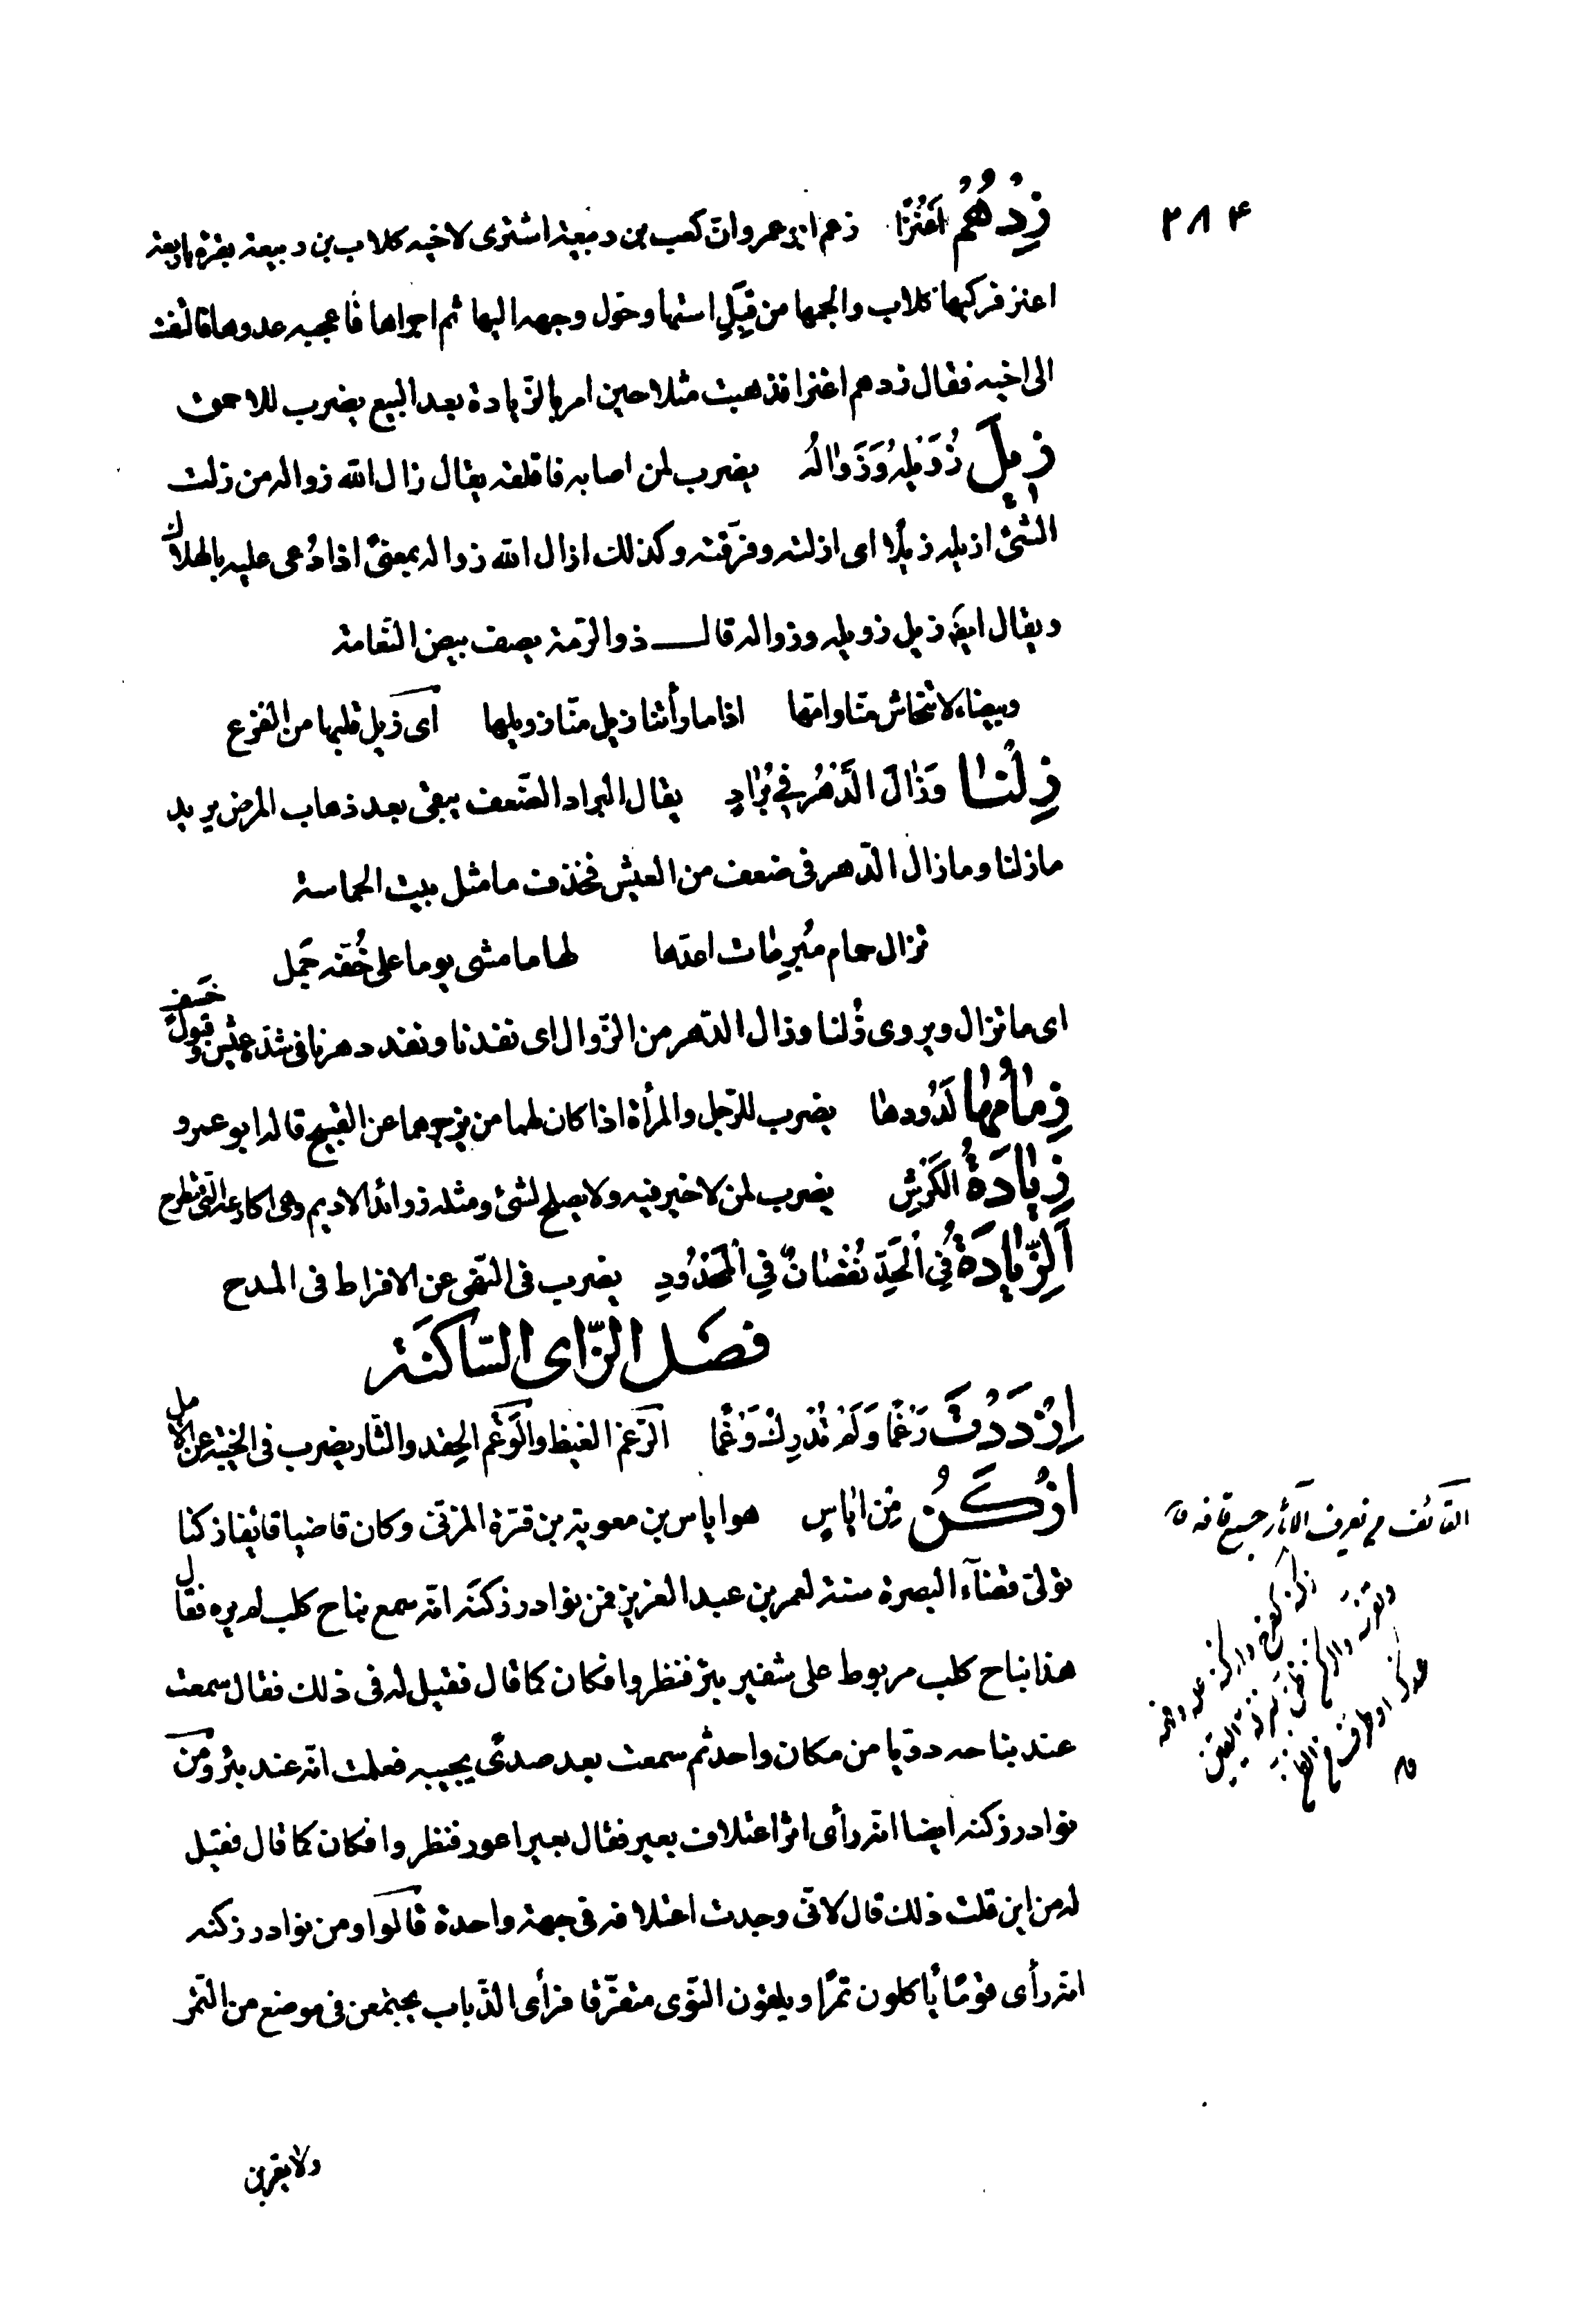 ٢٨٤
زِدْهُمْ اَعْنُزًا زعم ابو عمرو انّ كعب بن ربيعة اشترى لاخيه كلاب بن ربيعة بقرة باربعة
اعنز فركبها كلاب والجمها من قِبَلِ استها وحوّل وجهه اليها ثم اجراها فاعجبه عدوها فالتفت
الى اخيه فقال زدهم اعنزا فذهبت مثلا حين امر بالزّيادة بعد البيع يضرب للاحمق
زِيلَ زَوِيلُهُ وَزَوَالُهُ يضرب لمن اصابه فاقلقه يقال زال الله زواله من زلت
الشئ ازيله زيلًا اى ازلته وفرّقته وكذلك ازال الله زواله بمعنًى اذا دُعى عليه بالهلاك
ويقال ايضا زيل زويله وزواله قال ذو الرّمة يصف بيض النّعامة
وبيضاء لا تنحاش منّا وامّها اذا ما رأتنا زيل منّا زويلها اى زيل قلبها من الفزع
زِلْنَا وَزَالَ الدَّهْرُ فِي بُرَادٍ يقال البراد الضّعف يبقى بعد ذهاب المرض يريد
ما زلنا وما زال الدّهر فى ضعف من العيش فحذف ما مثل بيت الحماسة
تزال حبال مُبرمات اعدّها لها ما مشى يوما على خُفّه جَمل
اى ما تزال ويروى زُلنا وزال الدّهر من الزّوال اى نفدنا ونفد دهرنا فى شدّة عيش وقبول خسف
زِمَامُهَا لَدُودهَا يضرب للرّجل والمرأة اذا كان لهما من يزجرهما عن القبيح قاله ابو عمرو
زِيَادَةُ الكَرِشِ يضرب لمن لا خير فيه ولا يصلح لشئ ومثله زوائد الاديم وهى اكارعه التى تطرح
اَلزِّيَادَةُ فِي الْحَدِّ نُقْصَانٌ فِي الْمَحْدُودِ يضرب فى النّهى عن الافراط فى المدح
فصل الزّاى السّاكنة
اِزْدَدْتَ رَغْمًا وَلَمْ تُدْرِكْ وَغْمًا الرّغم الغيظ والوَغْم الحِقد والثّار يضرب فى الخيبة عن الامل
ازْكَنُ مِنْ ايَاسٍ هو اياس بن معوية بن قرّة المزنىّ وكان قاضيا قائفا زكنا
تولّى قضآء البصرة سنة لعمر بن عبد العزيز فمن نوادر زكنه انّه سمع نباح كلب لم يره فقال
هذا نباح كلب مربوط على شفير بئر فنظروا فكان كما قال فقيل له فى ذلك فقال سمعت
عند نباحه دويّا من مكان واحد ثم سمعت بعد صدًى يجيبه فعلمت انّه عند بئر ومن
نوادر زكنه ايضا انّه رأى اثر اعتلاف بعير فقال بعير اعور فنظروا فكان كما قال فقيل
له من اين قلت ذلك قال لانّى وجدت اعتلافه فى جهة واحدة قالوا ومن نوادر زكنه
انّه رأى قومًا يأكلون تمرًا ويلقون النّوى متفرّقا فرأى الذّباب يجتمعن فى موضع من التّمر
القائف من يعرف الآثار جمع قافة ق
زكنه كفرح وازكنه علمه وفهمه
ولا يقربن